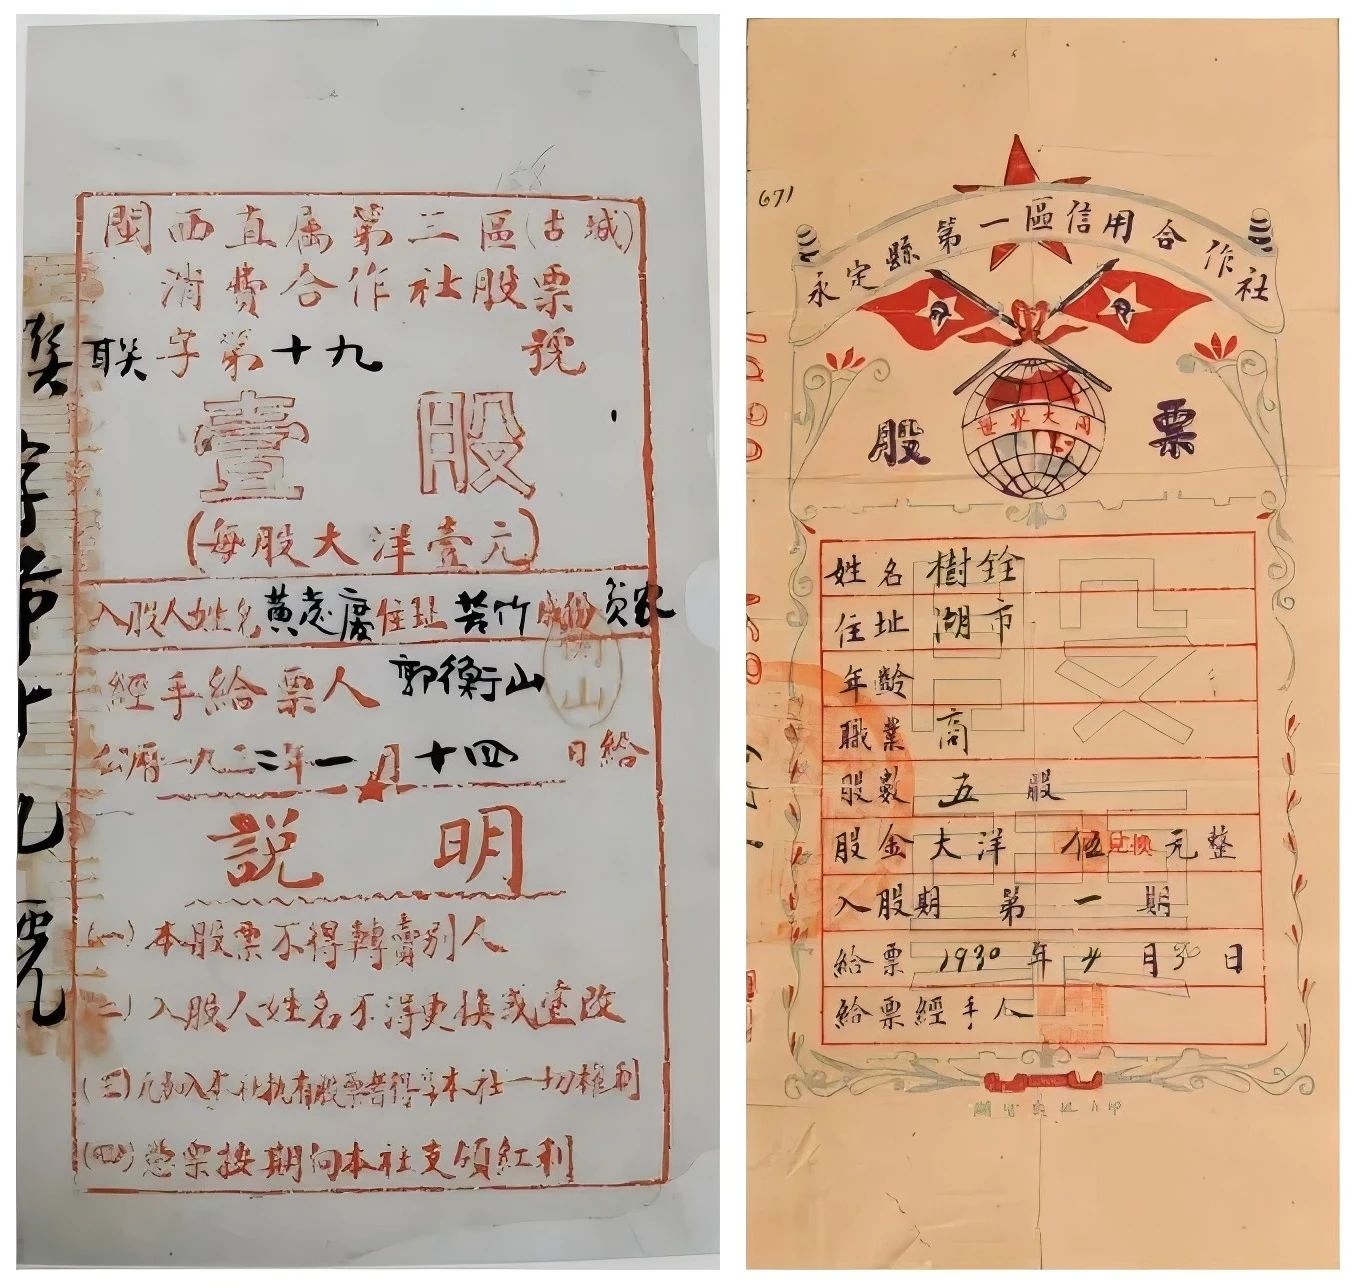 閩西直屬第三區(古城)
消費合作社股票
聯字第十九號
壹股
(每股大洋壹元)
入股人姓名黃慶住址苦竹成份貧农
經手給票人郭衡山
公曆一九三二年一月十四日給
説明
(一)本股票不得轉賣別人
(二)入股人姓名不得更换或塗改
(三)凡加入本社执有股票者得享本社一切權利
(四)憑票按期向本社支領紅利
字第十九號
671
永定縣第一區信用合作社
世界大同
股票
姓名樹銓
住址湖市
年齡
職業商
股數五股
股金大洋伍元整
兑换
入股期第一期
給票1930年4月30日
給票經手人